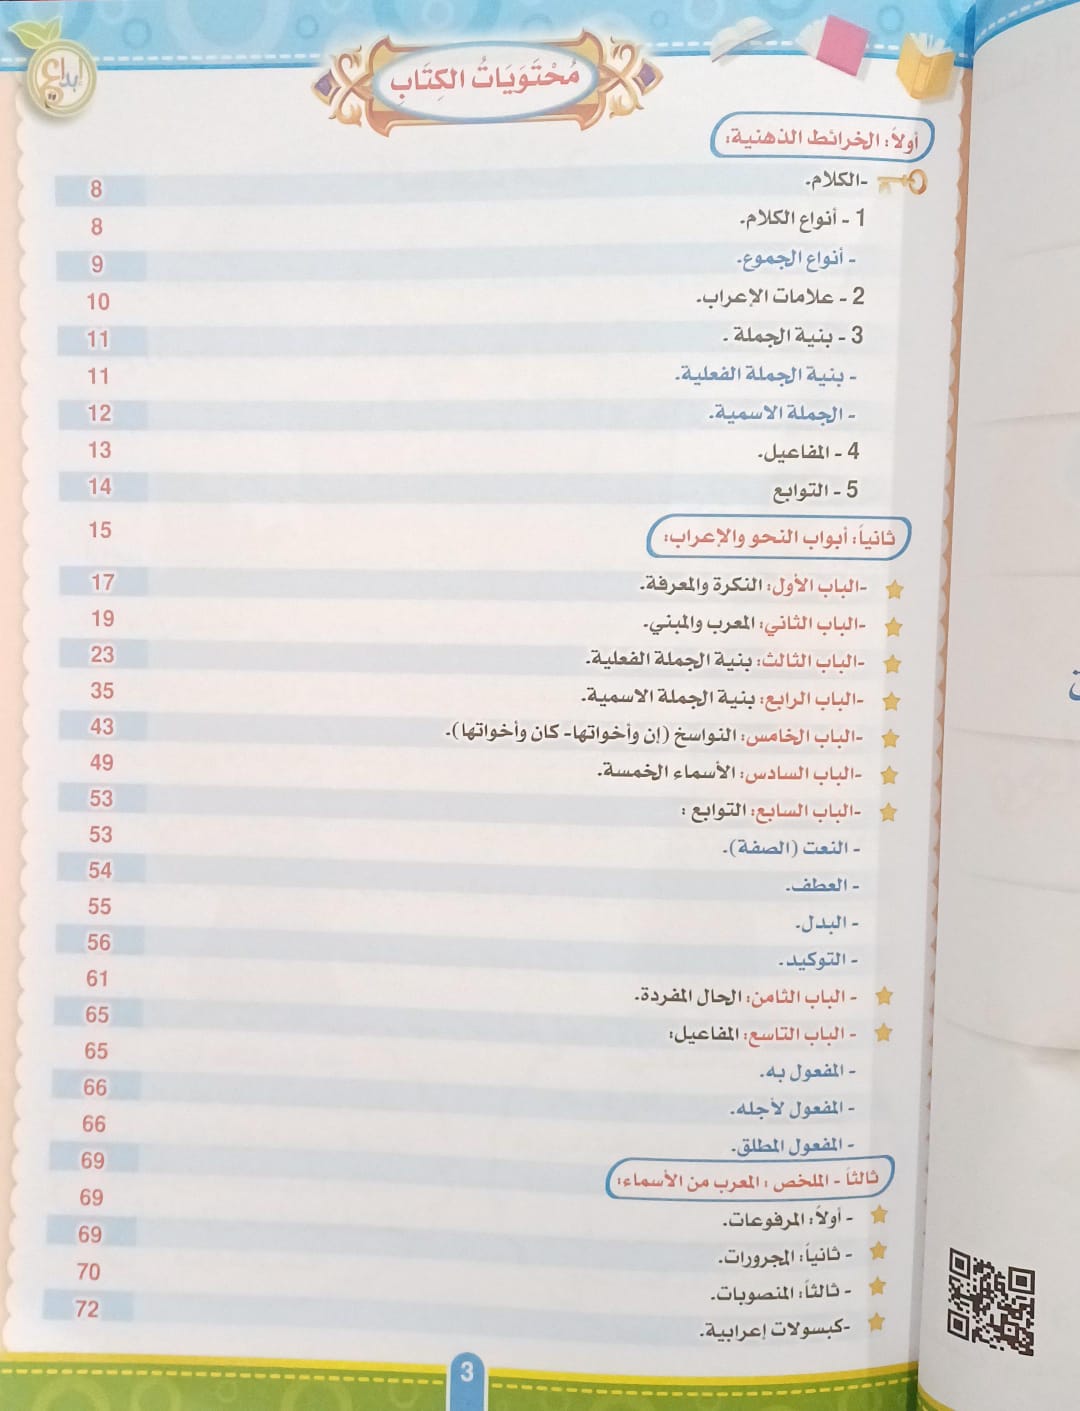 إبداع
مُحْتَوَيَاتُ الكِتَابِ
أولاً: الخرائط الذهنية:
-الكلام. 8
1 - أنواع الكلام. 8
- أنواع الجموع. 9
2 - علامات الإعراب. 10
3 - بنية الجملة . 11
- بنية الجملة الفعلية. 11
- الجملة الاسمية. 12
4 - المفاعيل. 13
5 - التوابع 14
ثانياً: أبواب النحو والإعراب: 15
-الباب الأول: النكرة والمعرفة. 17
-الباب الثاني: المعرب والمبني. 19
-الباب الثالث: بنية الجملة الفعلية. 23
-الباب الرابع: بنية الجملة الاسمية. 35
-الباب الخامس: النواسخ (إن وأخواتها- كان وأخواتها). 43
-الباب السادس: الأسماء الخمسة. 49
-الباب السابع: التوابع : 53
- النعت (الصفة). 53
- العطف. 54
- البدل. 55
- التوكيد. 56
- الباب الثامن: الحال المفردة. 61
- الباب التاسع: المفاعيل: 65
- المفعول به. 65
- المفعول لأجله. 66
- المفعول المطلق. 66
ثالثاً - الملخص : المعرب من الأسماء: 69
- أولاً: المرفوعات. 69
- ثانياً: المجرورات. 69
- ثالثاً: المنصوبات. 70
-كبسولات إعرابية. 72
3